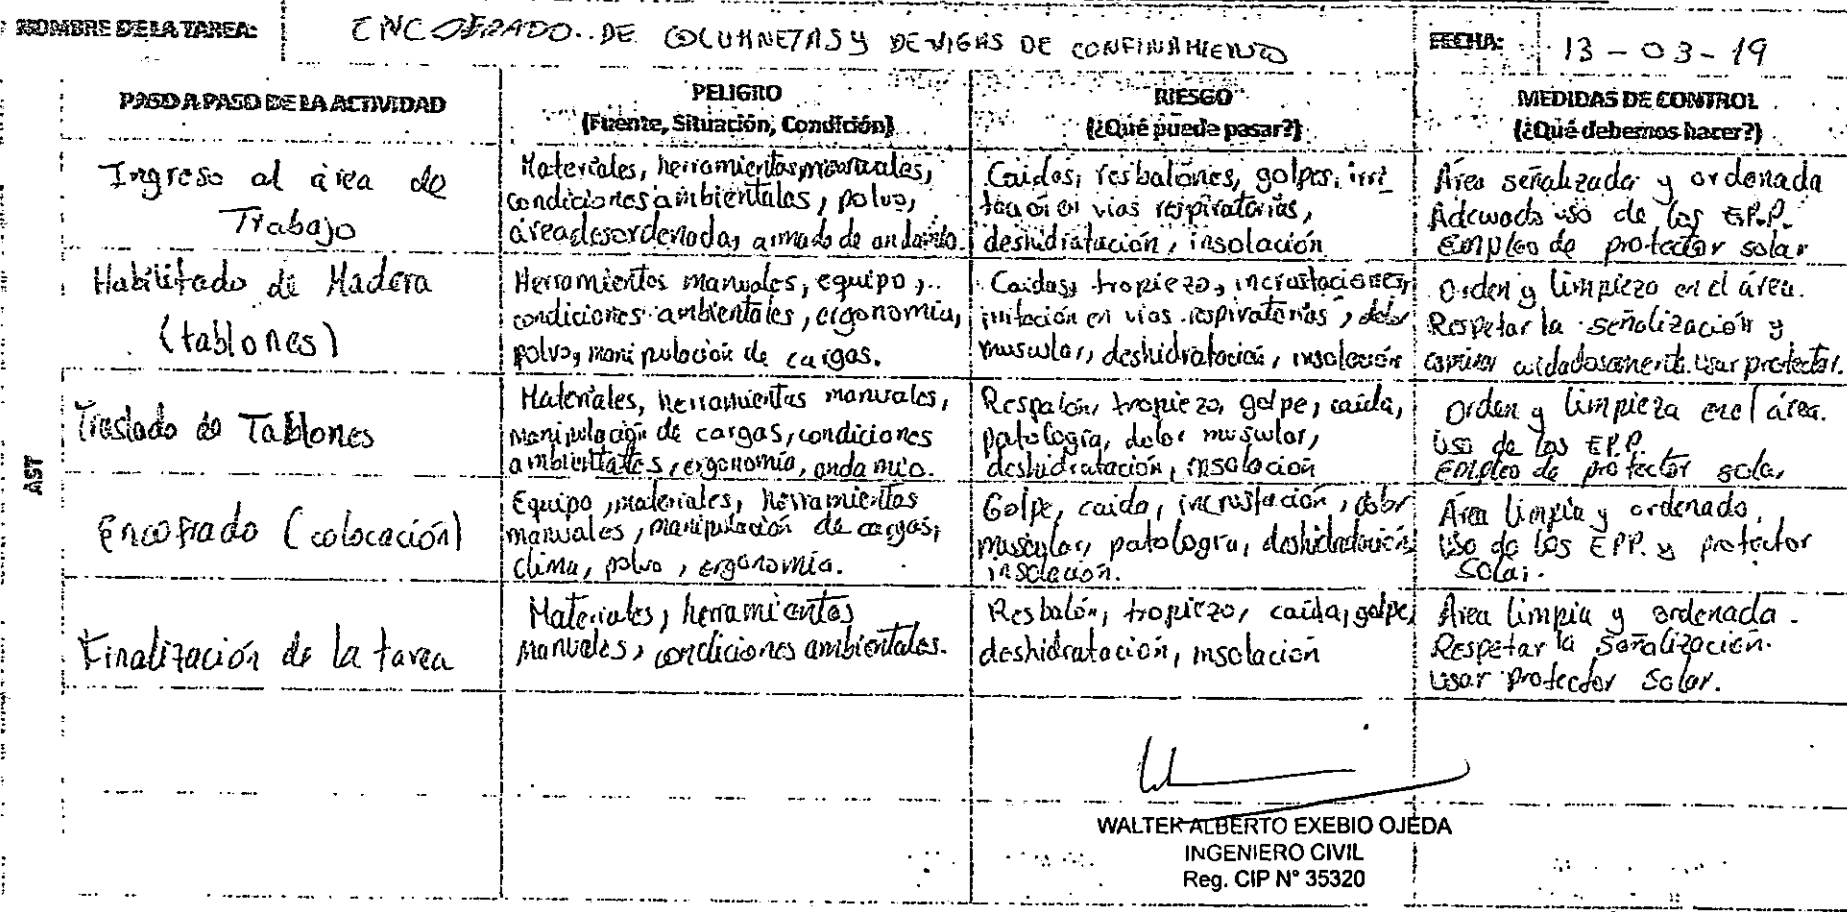 NOMBRE DE LA TAREA: ENCOFRADO DE COLUMNETAS Y DE VIGAS DE CONFINAMIENTO FECHA: 13-03-19
PASO A PASO DE LA ACTIVIDAD
PELIGRO
(Fuente, Situación, Condición)
RIESGO
(¿Qué puede pasar?)
MEDIDAS DE CONTROL
(¿Qué debemos hacer?)
AST
Ingreso al área de
Trabajo
Materiales, herramientas manuales,
condiciones ambientales, polvo,
área desordenada, armado de andamio.
Caidas, resbalones, golpes, irri
tación en vias respiratorias,
deshidratación, insolación
Área señalizada y ordenada
Adecuado uso de los EP.P.
Empleo de protector solar
Habilitado de Madera
(tablones)
Herramientas manuales, equipo,
condiciones ambientales, ergonomia,
polvo, manipulación de cargas.
Caidas, tropiezo, incrustaciones,
irritación en vias respiratorias, dolor
muscular, deshidratación, insolación
Orden y limpieza en el área.
Respetar la señalización y
caminar cuidadosamente. Usar protector.
Traslado de Tablones
Materiales, herramientas manuales,
manipulación de cargas, condiciones
ambientales, ergonomía, andamio.
Respalón, tropiezo, golpe, caída,
patología, dolor muscular,
deshidratación, insolación
Orden y limpieza en el área.
Uso de los EP.P.
Empleo de protector solar
Encofrado (colocación)
Equipo, materiales, herramientas
manuales, manipulación de cargas,
clima, polvo, ergonomía.
Golpe, caida, incrustación, dolor
muscular, patologia, deshidratación,
insolación.
Área limpia y ordenado,
Uso de los EPP. y protector
solar.
Finalización de la tarea
Materiales, herramientas
manuales, condiciones ambientales.
Resbalón, tropiezo, caída, golpe,
deshidratación, insolación
Área limpia y ordenada.
Respetar la Señalización.
Usar protector Solar.
WALTER ALBERTO EXEBIO OJEDA
INGENIERO CIVIL
Reg. CIP N° 35320